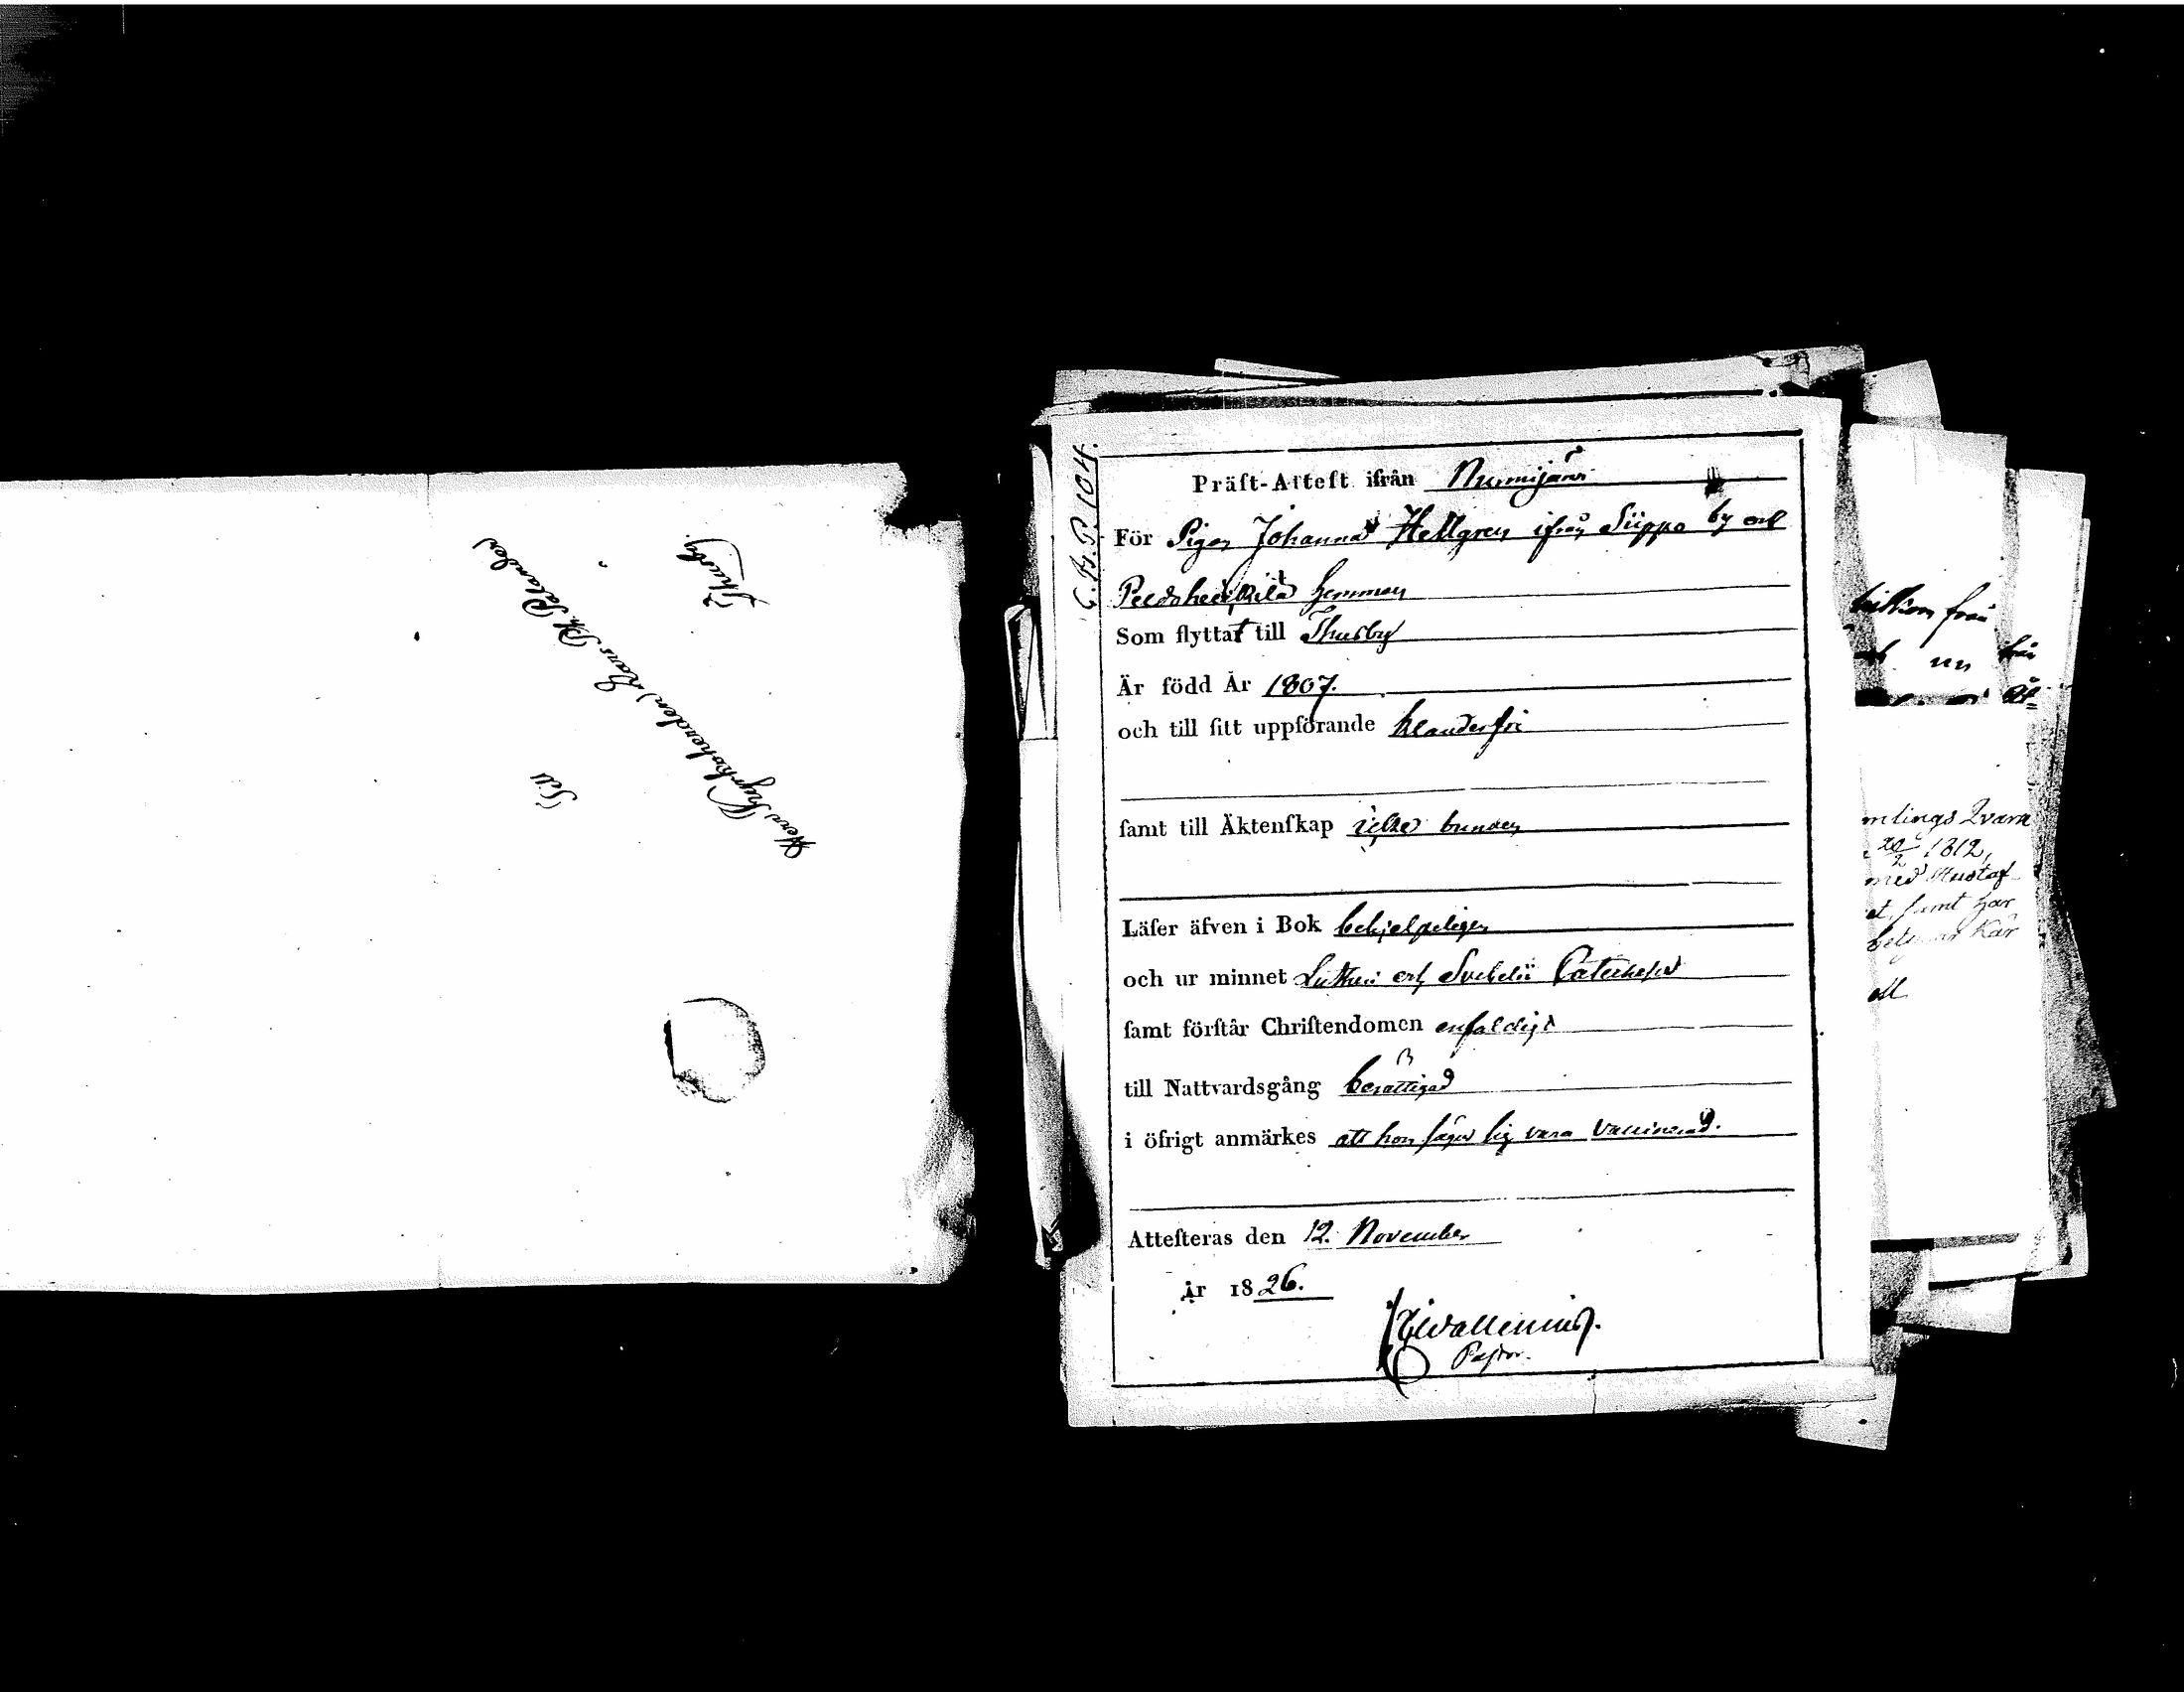 Till
Herr Kyrkoherden Lars Ph. Palander
Thusby.
C.B.P. 104.
Präſt-Atteſt ifrån Nurmijärvi
För Pigan Johanna Hellgren ifrån Siippo by och
Peldoheikkilä Hemman
Som flyttat till Thusby
Är född År 1807.
och till ſitt uppförande klanderfri
ſamt till Äktenſkap icke bunden
Läſer äfven i Bok behjelpeligen
och ur minnet Lutheri och Svebelii Cateches
ſamt förſtår Chriſtendomen enfaldigt
till Nattvardsgång berättigad
i öfrigt anmärkes att hon säger sig vara vaccinerad.
Atteſteras den 12. November
År 1826.
Wallenius.
Pastor.
från
mlings Qvarn
20/2 1812,
med Gustaf
et, samt har